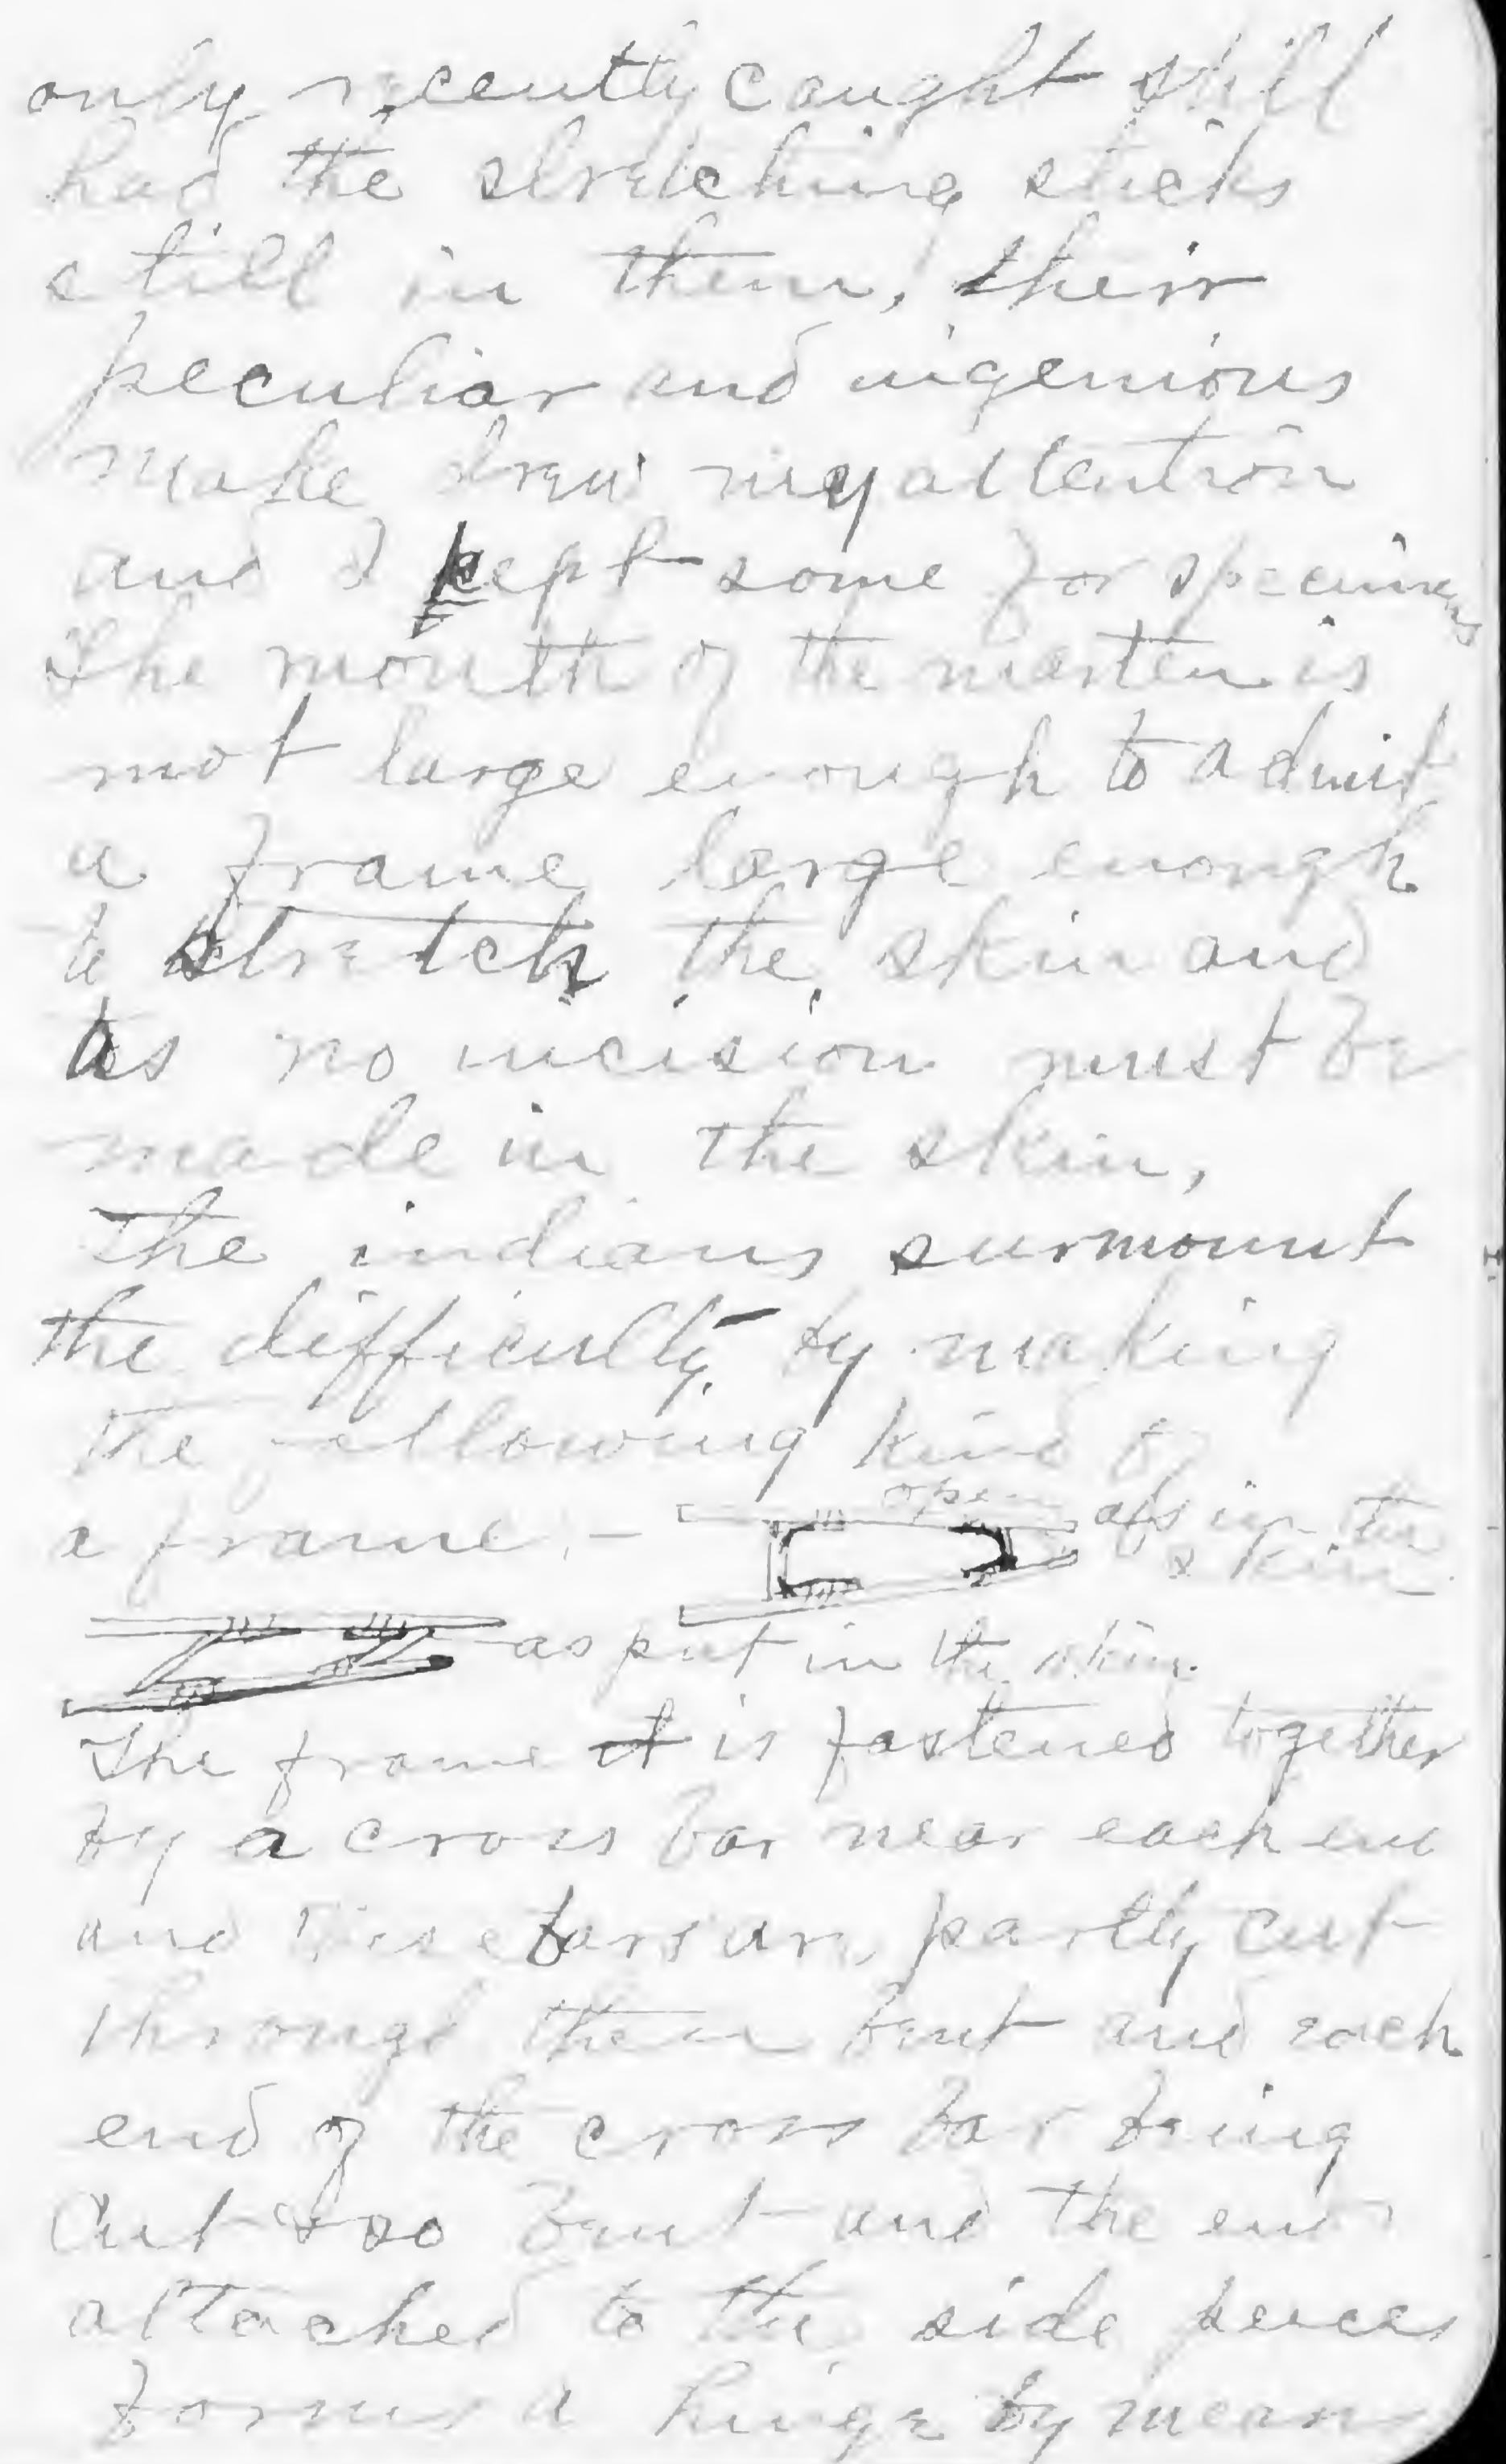 only recently caught still
had the stretching sticks
still in them, their
peculiar and ingenious
make drew my attention
and I kept some for specimens
The mouth of the marten is
not large enough to admit
a frame large enough
to stretch the skin and
as no incision must be
made in the skin,
The indians surmount
the difficulty by making
the following kind of
a frame, - open as in the
skin
as put in the skin.
The frame it is fastened together
by a cross bar near each end
and these bars are partly cut
through then bent and each
end of the cross bar being
Cut also bent and the end
attached to the side peices
forms a hinge by mean